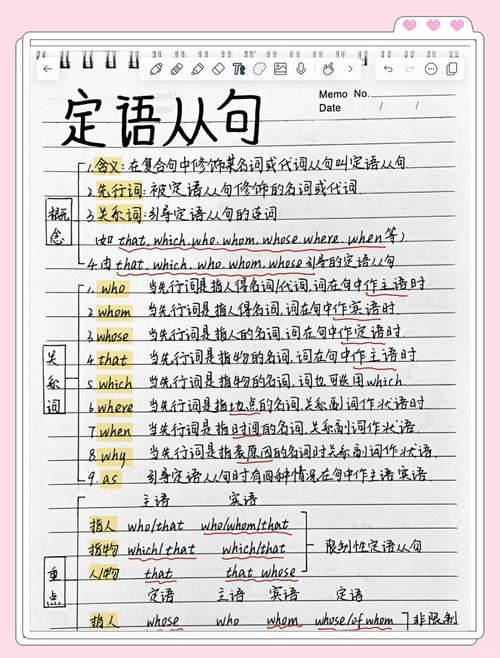 Memo No.
Date / /
定语从句
概念
1.含义:在复合句中修饰某名词或代词从句叫定语从句
2.先行词:被定语从句修饰的名词或代词
3.关系词:引导定语从句的连词
(如that.which.who.whom.whose.where.when等)
4.由that.which.who.whom.whose引导的定语从句
关系词
1. who 当先行词是指人得名词/代词,词在句中作主语时
2. whom 当先行词是指人得名词.词在句中作宾语时
3. whose 当先行词是指人的名词.词在句中作定语时
4. that 当先行词是指物的名词.词在句中作主语时
5. which 当先行词是指物的名词.词也可选用which.
6. where 当先行词是指地点的名词.关系副词作状语时
7. when 当先行词是指时间的名词.关系副词作状语时.
8. why 当先行词是指表原因的名词时关系副词作状语.
9. as 引导定语从句时有两种情况在句中作主语宾语
重点
主语 宾语
指人 who/that who/whom/that
指物 which/that which/that 限制性定语从句
人/物 that that whose
定语 主语 宾语 定语
指人 whose who whom whose/of whom 非限制